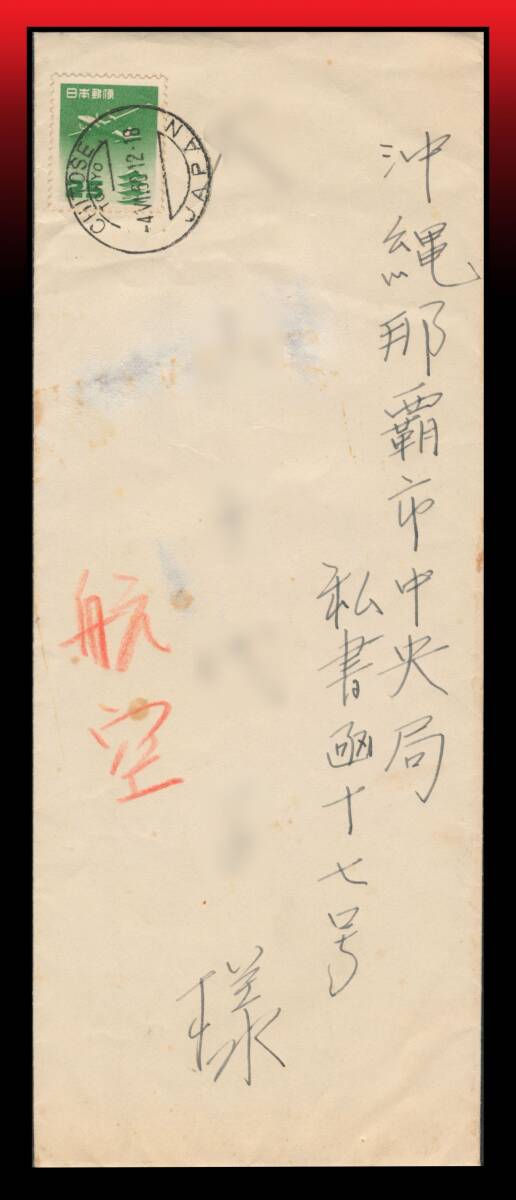 日本郵便
CHITOSE
TOKYO
JAPAN
沖縄那覇市中央局
私書函十七号
様
航空